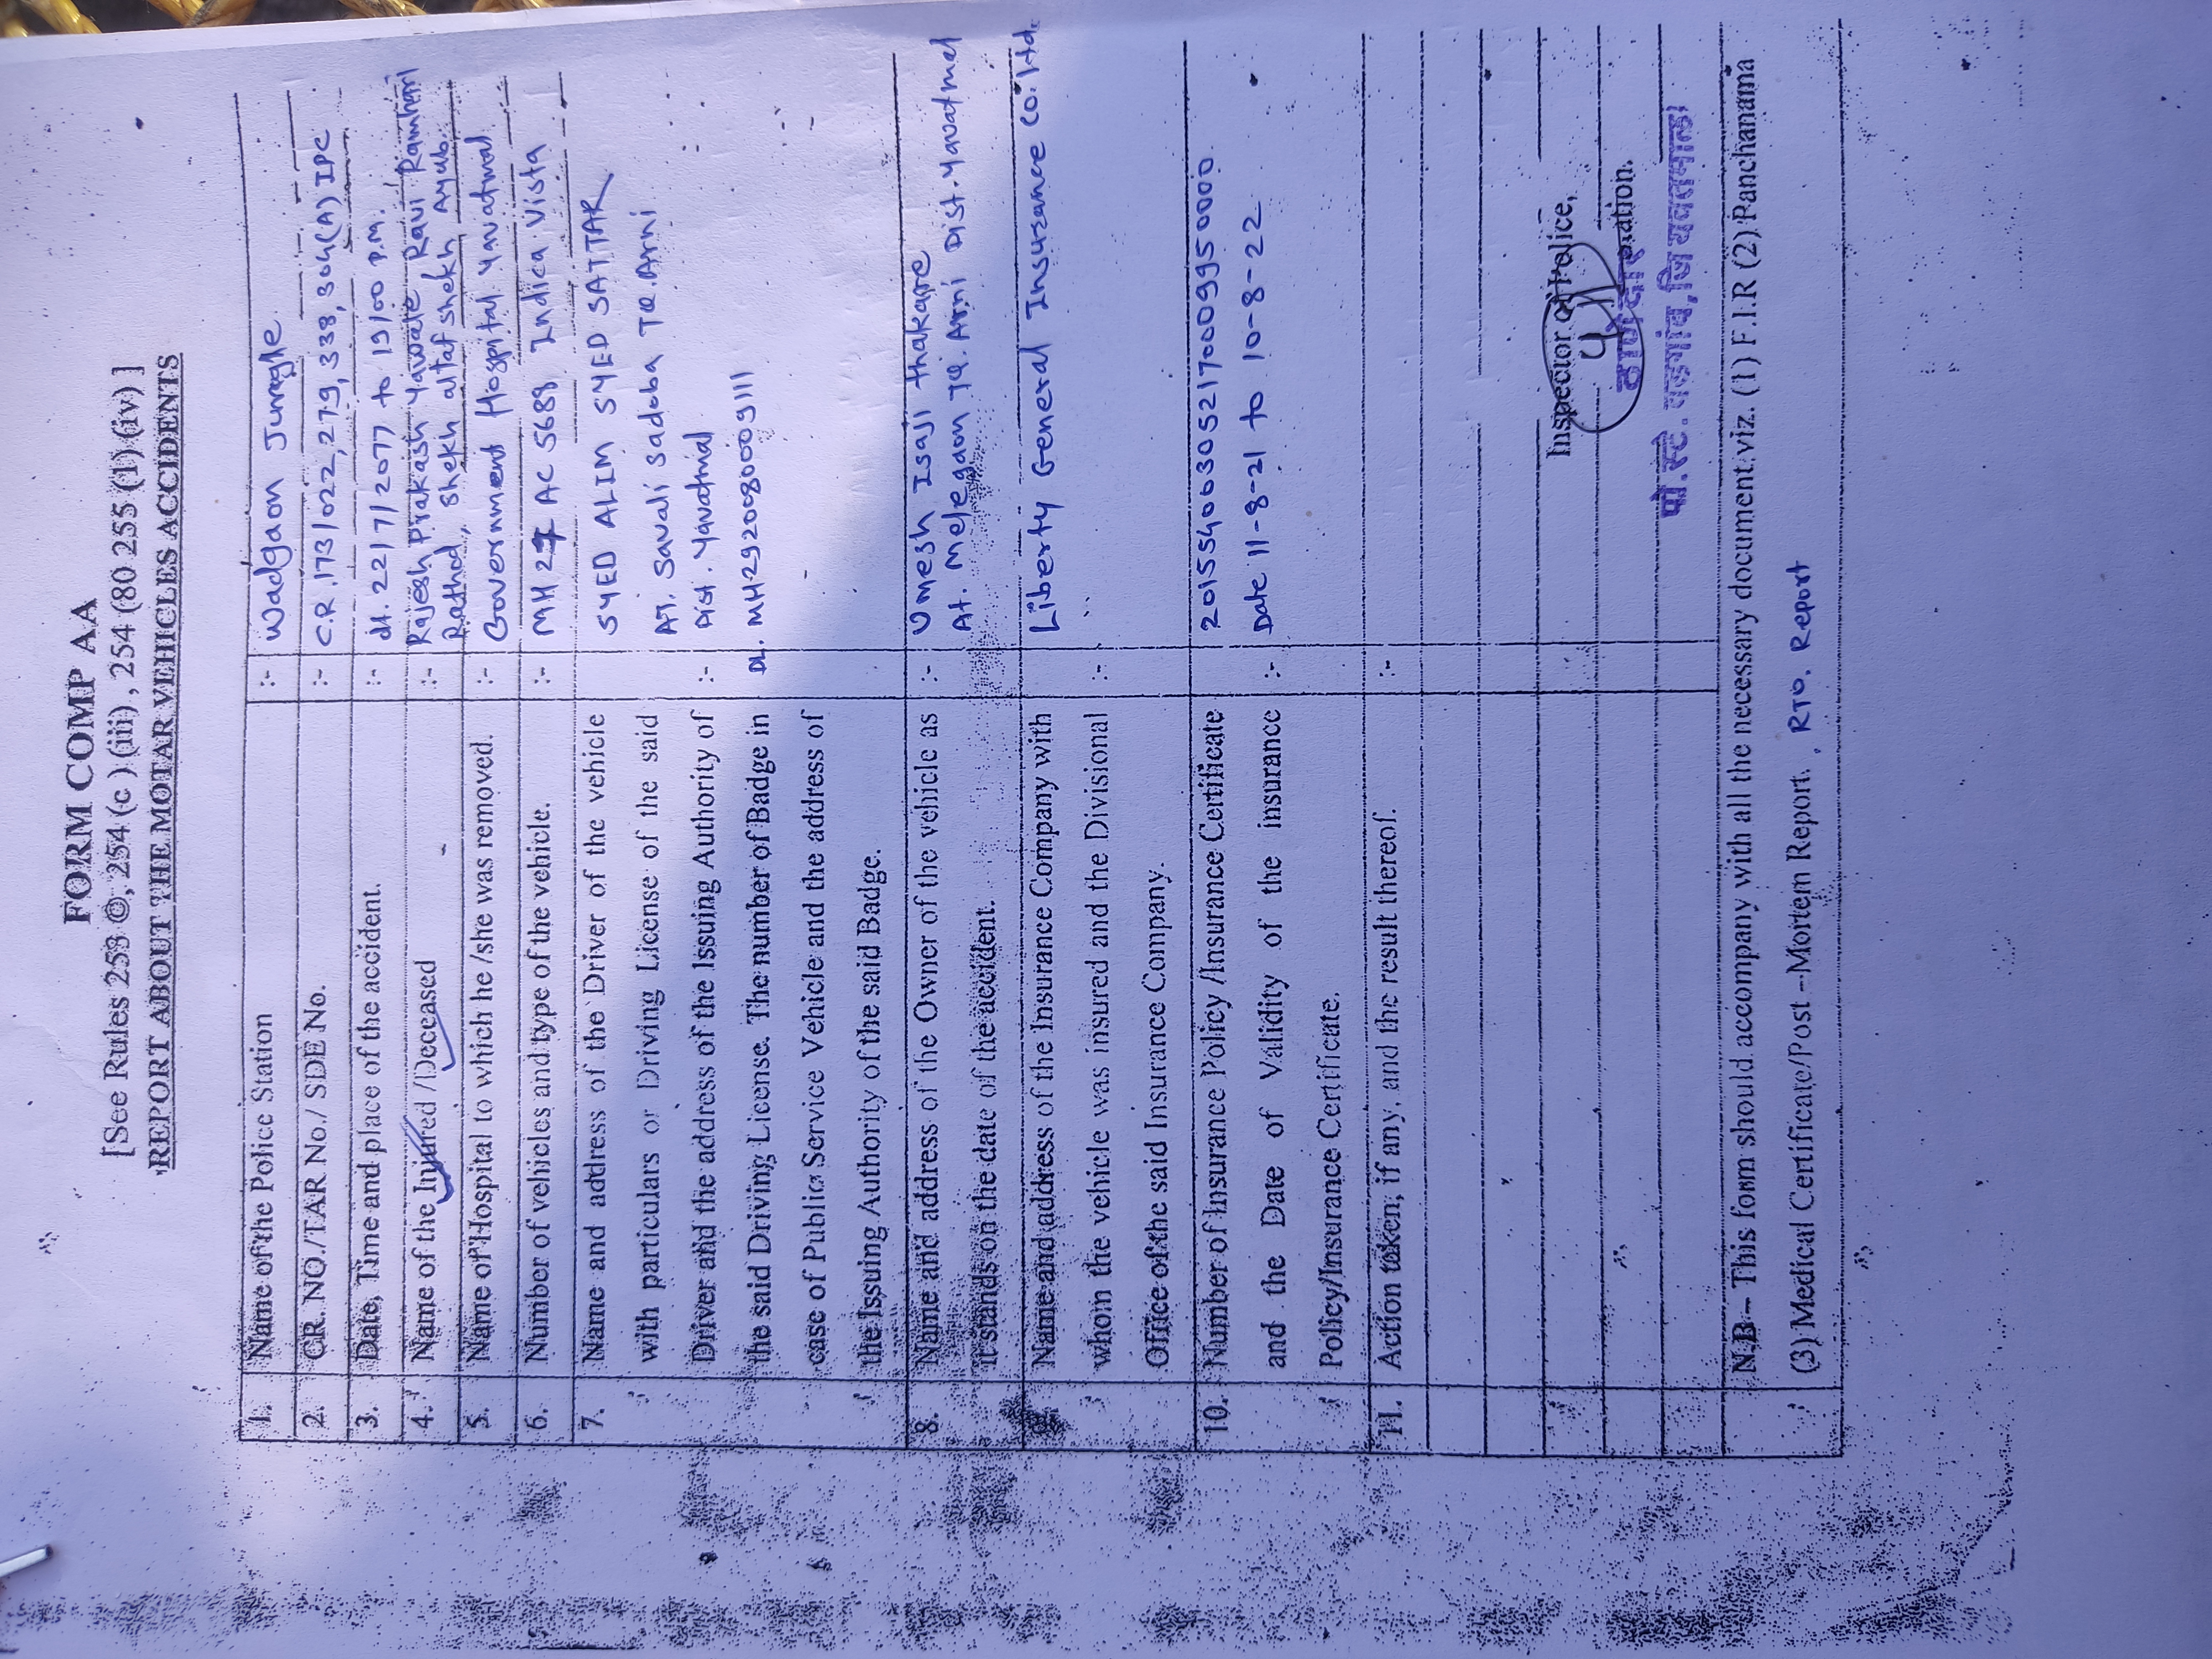 FORM COMP AA
[See Rules 253 ©, 254 (c ) (iii) , 254 (80 255 (1) (iv) ]
REPORT ABOUT THE MOTAR VEHICLES ACCIDENTS
1. Name of the Police Station :- Wadgaon Jungle
2. CR. NO./TAR No./ SDE No. :- C.R. 173/022, 279, 338, 304(A) IPC
3. Date, Time and place of the accident. :- dt. 22/7/2077 to 19/00 P.M.
4. Name of the Injured /Deceased :- Rajesh Prakash Yawale Ravi Ramhari
Rathod, shekh altaf shekh Ayub.
5. Name of Hospital to which he /she was removed. :- Government Hospital Yavatmal
6. Number of vehicles and type of the vehicle. :- MH 27 AC 5689 Indica Vista
7. Name and address of the Driver of the vehicle SYED ALIM SYED SATTAR
with particulars or Driving License of the said AT. Savali sadoba TQ. Arni
Driver and the address of the Issuing Authority of :- Dist. Yavatmal
the said Driving License. The number of Badge in DL. MH2920080009111
case of Public Service Vehicle and the address of
the Issuing Authority of the said Badge.
8. Name and address of the Owner of the vehicle as :- Umesh Isaji thakare
it stands on the date of the accident. At. Melegaon TQ. Arni Dist. Yavatmal
9. Name and address of the Insurance Company with Liberty General Insurance Co. Ltd.
whom the vehicle was insured and the Divisional :-
Office of the said Insurance Company.
10. Number of Insurance Policy /Insurance Certificate 201554006305217000995 0000
and the Date of Validity of the insurance :- Date 11-8-21 to 10-8-22
Policy/Insurance Certificate.
11. Action token, if any, and the result thereof. :-
Inspector of Police,
ठाणेदार
पो. स्टे. वडगांव, जि यवतमाळ
N.B – This form should accompany with all the necessary document viz. (1) F.I.R (2) Panchanama
(3) Medical Certificate/Post –Mortem Report. , RTO. Report